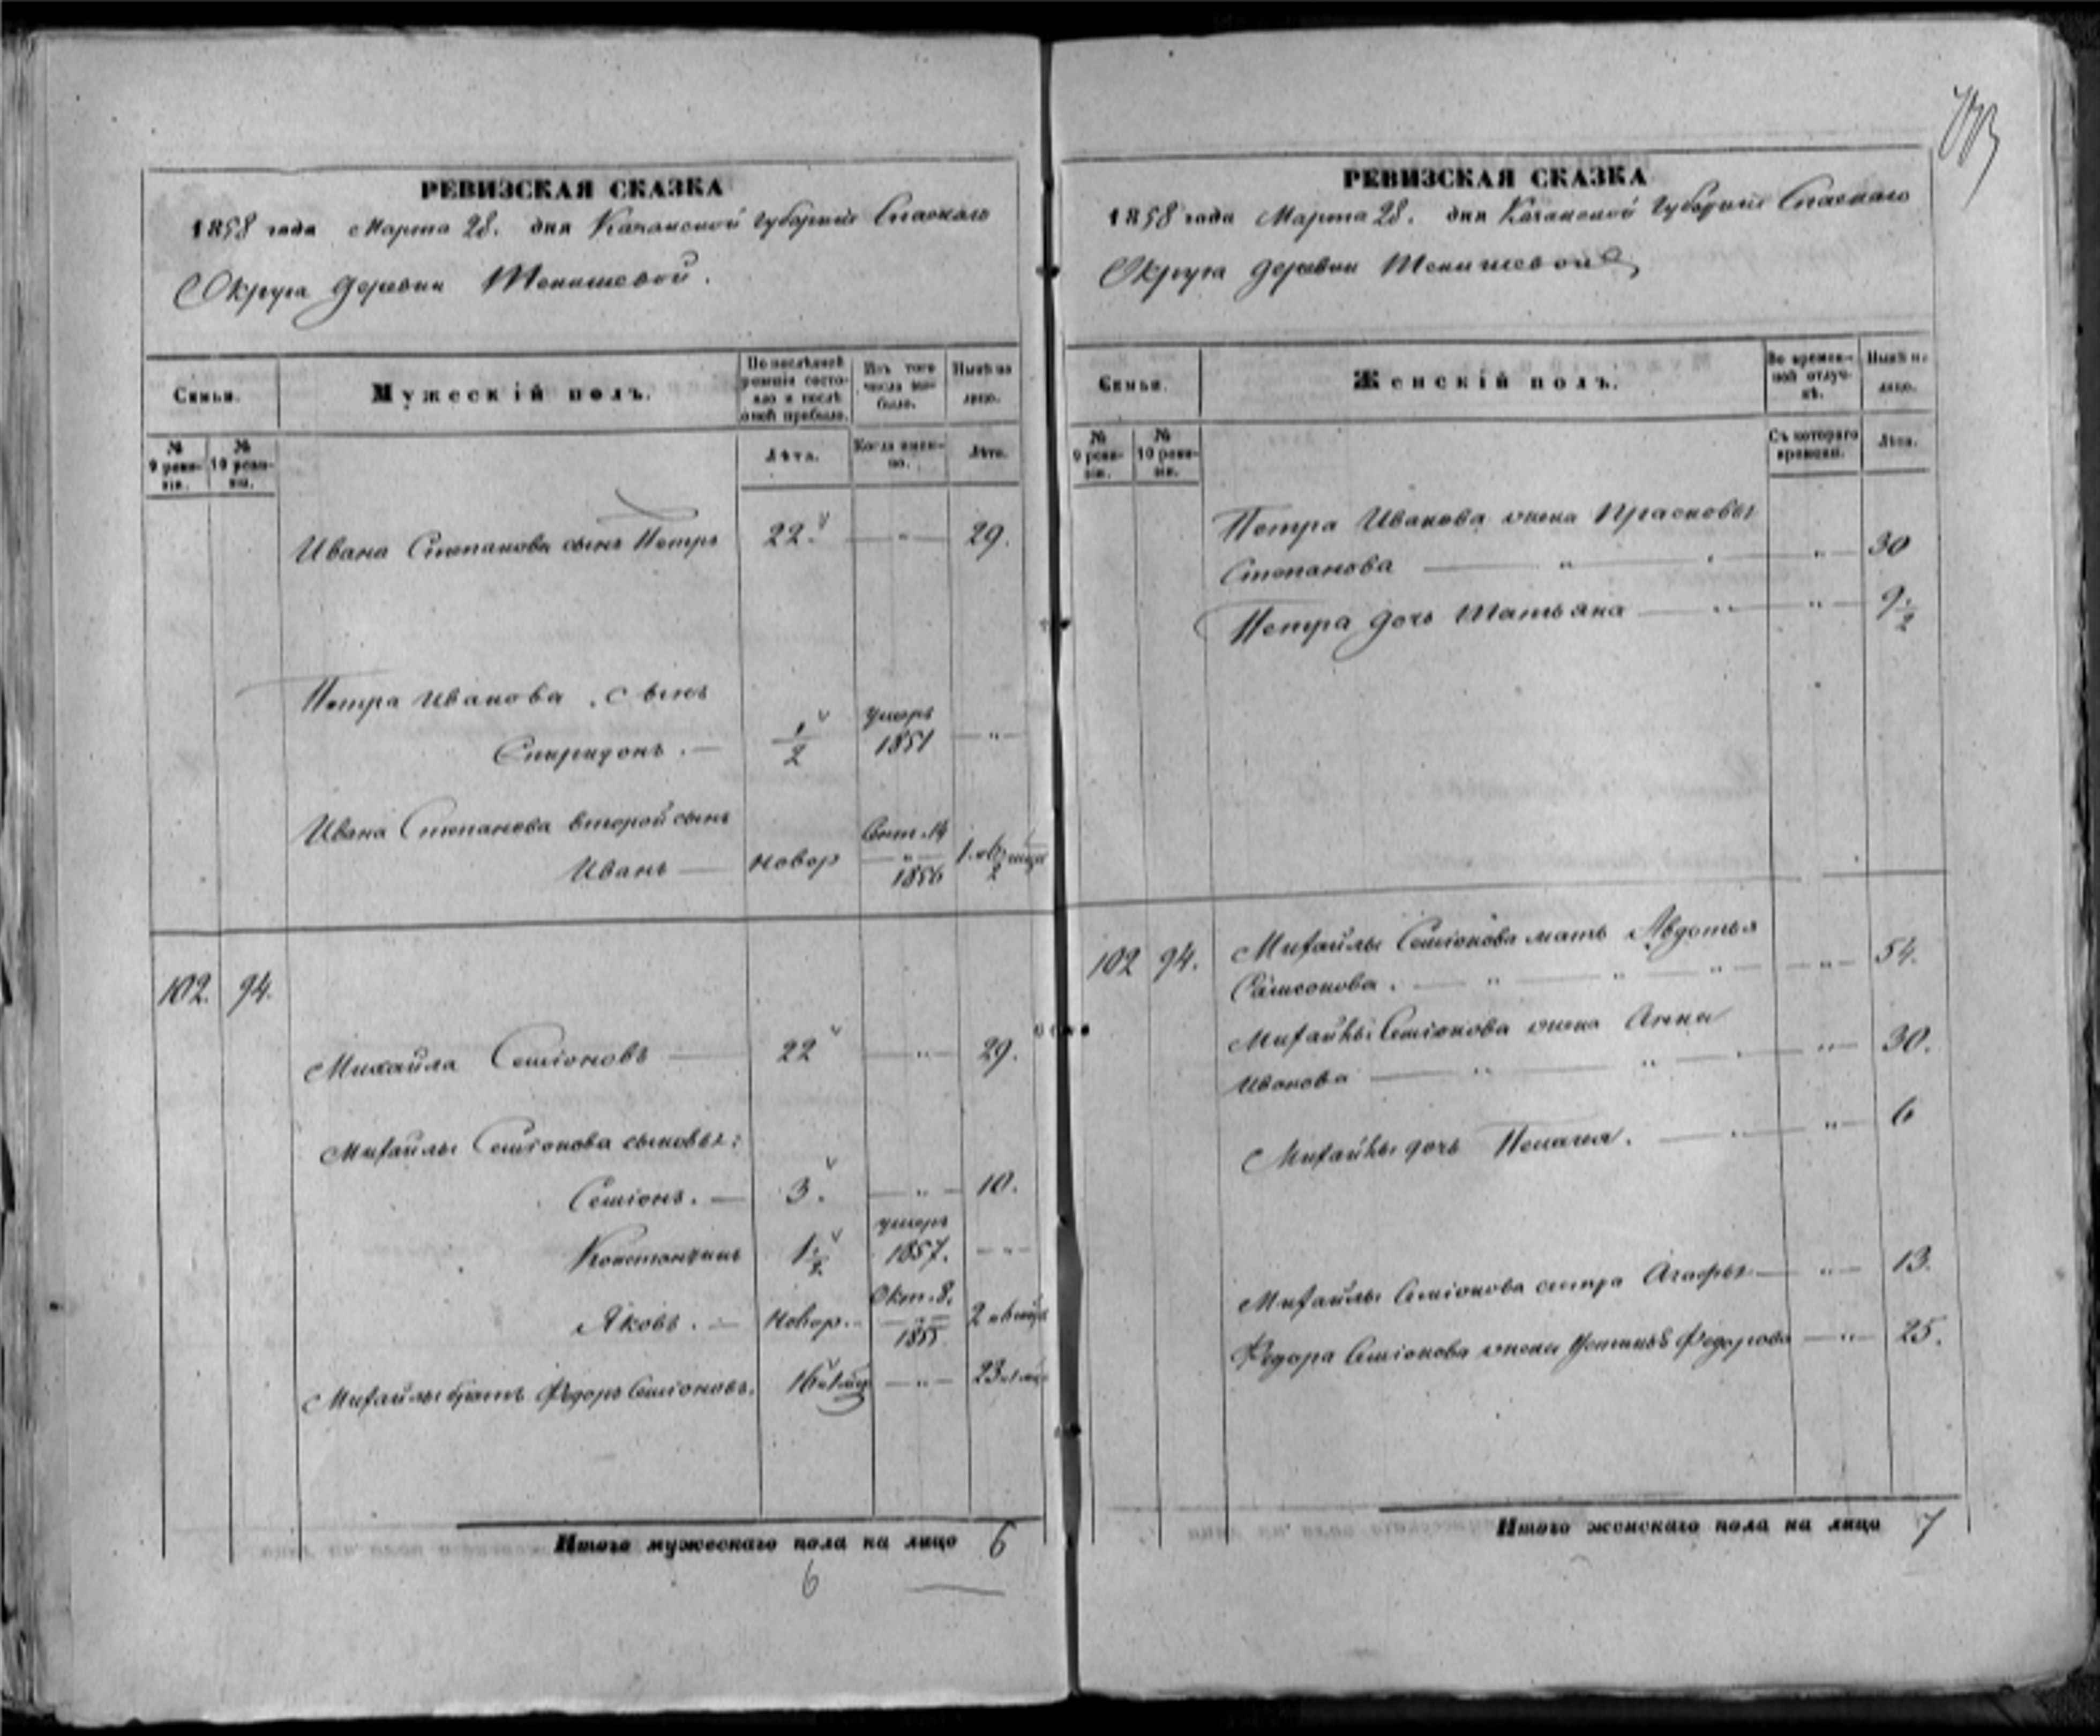 РЕВИЗСКАЯ СКАЗКА
1858 года Марта 28. дня Казанской губернiи Спаскаго
Округа деревни Тенишевой.
Семьи.
Мужескiй полъ.
По послѣдней ревизiи состояло и послѣ оной прибыло.
Изъ того числа выбыло.
Нынѣ на лицо.
№ 9 ревизiи.
№ 10 ревизiи.
Лѣта.
Когда именно.
Лѣта.
Ивана Степанова сынъ Петръ 22. — „ — 29.
Петра Иванова сынъ
Спиридонъ. — 1/2 умеръ 1851 — „ —
Ивана Степанова второй сынъ
Иванъ — новор Сент. 14 1856 1 1/2
102. 94.
Михайла Семiоновъ — 22 — „ — 29.
Михайлы Семiонова сыновья:
Семiонъ. — 3. — „ — 10.
Константинъ 1 1/2 умеръ 1857. — „ —
Яковъ. — новор. Окт. 8. 1855 2
Михайлы братъ Федоръ Семiоновъ. 16 — „ — 23
Итого мужескаго пола на лицо 6
6
РЕВИЗСКАЯ СКАЗКА
1858 года Марта 28. дня Казанской губернiи Спаскаго
Округа деревни Тенишевой
Семьи.
Женскiй полъ.
Во временной отлучкѣ.
Нынѣ на лицо.
№ 9 ревизiи.
№ 10 ревизiи.
Съ котораго времени.
Лѣта.
Петра Иванова жена Прасковья
Степанова — „ — „ — 30
Петра дочь Татьяна — „ — „ — 9 1/2
102 94. Михайлы Семiонова мать Авдотья
Самсонова. — „ — „ — „ — 54.
Михайлы Семiонова жена Анна
Иванова — „ — „ — „ — 30.
Михайлы дочь — „ — „ — 6
Михайлы Семiонова сестра Агафья — „ — 13.
Федора Семiонова жена Федорова — „ — 25.
Итого женскаго пола на лицо 7